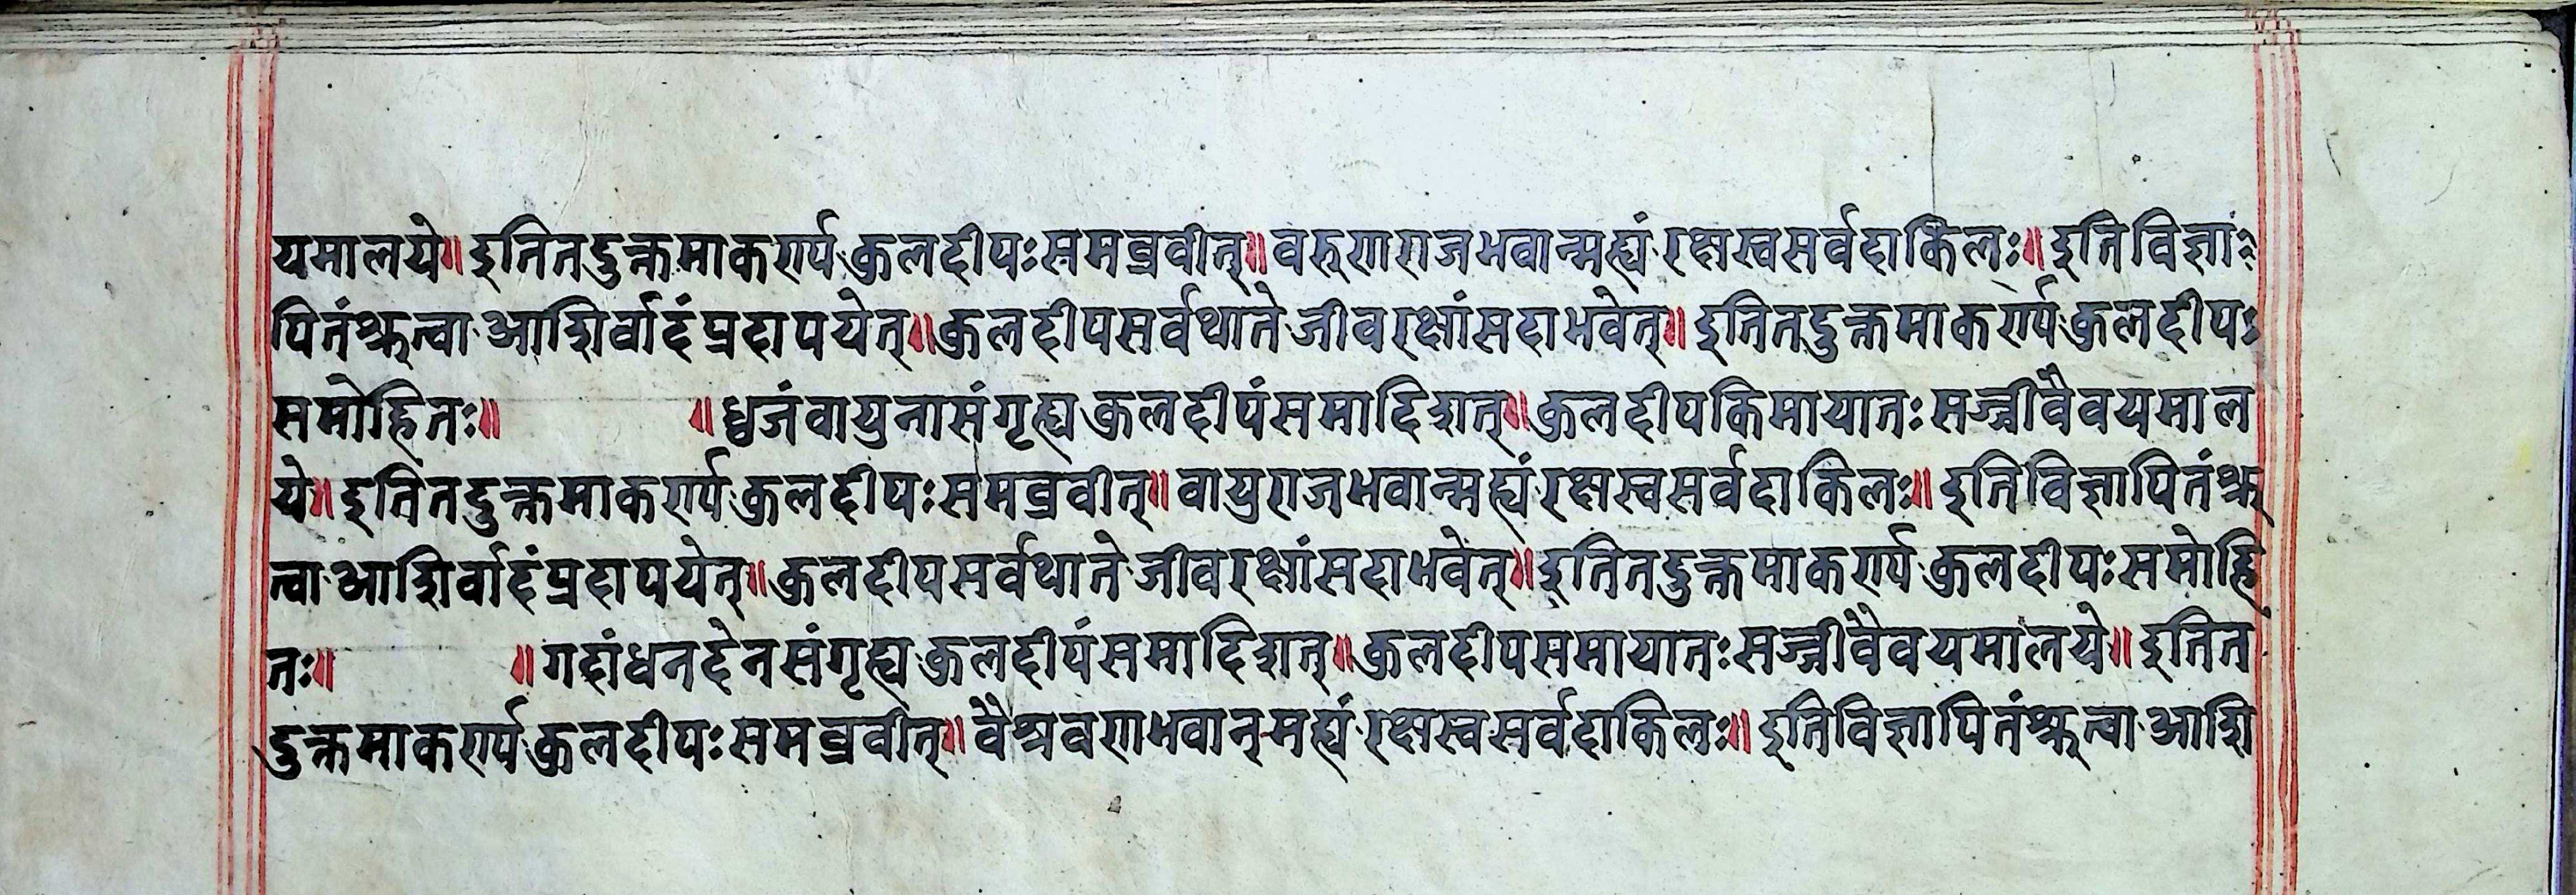 यमालये॥इतितदुक्तमाकर्ण्यकुलदीपःसमब्रवीत्॥वरुणराजभवान्मह्यंरक्षस्वसर्वदाकिलः॥इतिविज्ञा
पितंश्रुत्वाआशिर्वादंप्रदापयेत्॥कुलदीपसर्वथातेजीवरक्षांसदाभवेत्॥इतितदुक्तमाकर्ण्यकुलदीपः
समोहितः॥ ॥ध्वजंवायुनासंगृह्यकुलदीपंसमादिशत्॥कुलदीपकिमायातःसज्जीवैवयमाल
ये॥इतितदुक्तमाकर्ण्यकुलदीपःसमब्रवीत्॥वायुराजभवान्मह्यंरक्षस्वसर्वदाकिलः॥इतिविज्ञापितंश्रु
त्वाआशिर्वादंप्रदापयेत्॥कुलदीपसर्वथातेजीवरक्षांसदाभवेत्॥इतितदुक्तमाकर्ण्यकुलदीपःसमोहि
तः॥ ॥गदांधनदेनसंगृह्यकुलदीपंसमादिशत्॥कुलदीपसमायातःसज्जीवैवयमालये॥इतित
दुक्तमाकर्ण्यकुलदीपःसमब्रवीत्॥वैश्रवणभवान्मह्यंरक्षस्वसर्वदाकिलः॥इतिविज्ञापितंश्रुत्वाआशि